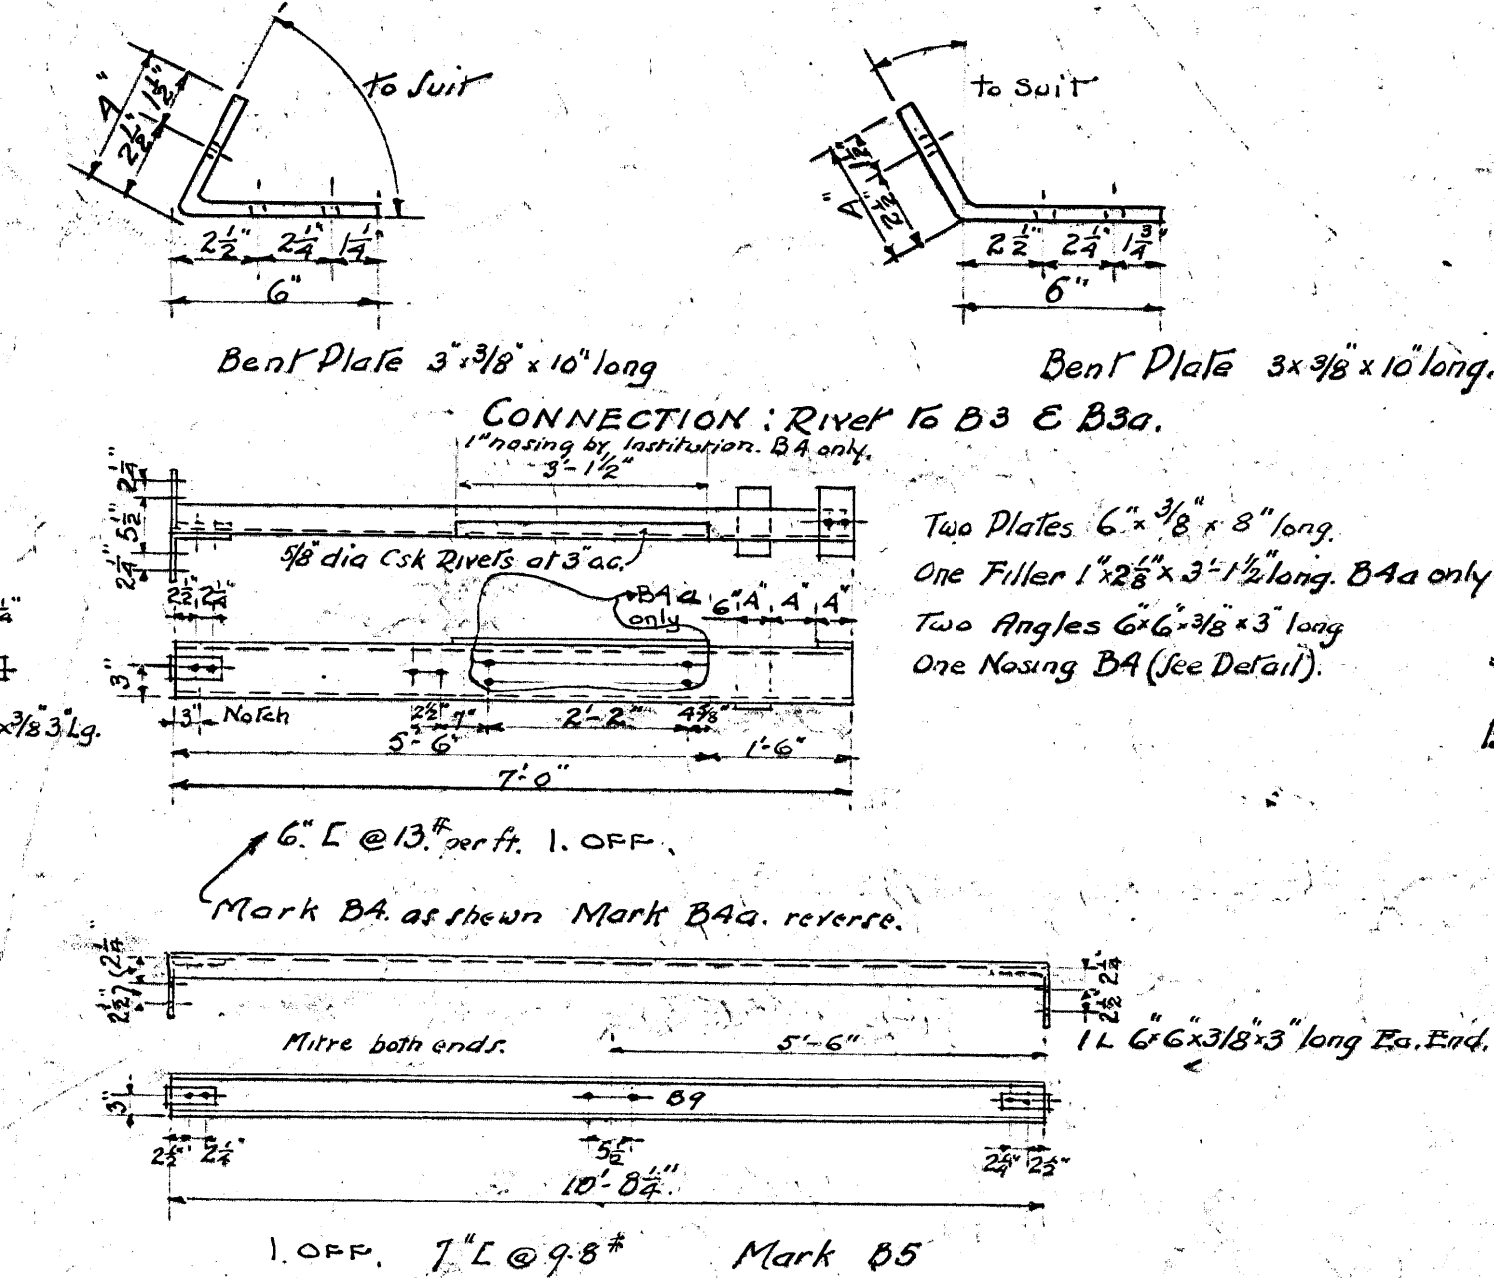 to Suit
4"
1½"
2½"
2½" 2¼" 1¼"
6"
Bent Plate 3"x3/8"x10" long
to Suit
1½"
4"
2½"
2½" 2¼" 1¾"
6"
Bent Plate 3x3/8"x10" long.
CONNECTION: Rivet to B3 & B3a.
1" nosing by Institution. B4 only.
3'-1½"
2¼"
5½"
2¼"
5/8" dia Csk Rivets at 3" a.c.
2½" 2¼"
B4a only
6" 4" 4" 4"
3"
3" Notch
2½" 7" 2'-2" 4⅜"
5'-6" 1'-6"
7'-0"
Two Plates 6"x3/8"x8" long.
One Filler 1"x2⅛"x3'-1½" long. B4a only
Two Angles 6"x6"x3/8"x3" long
One Nosing B4 (See Detail).
¼"
x3/8"3"Lg.
6" [ @ 13.# per ft. 1. OFF.
Mark B4. as shewn Mark B4a. reverse.
2¼"
2½"
2¼"
2½"
Mitre both ends.
5'-6"
1 L 6"x6"x3/8"x3" long Ea. End.
3"
B9
2½" 2¼" 5½ 2¼" 2½"
10'-8¼"
1. OFF. 7" [ @ 9.8# Mark B5